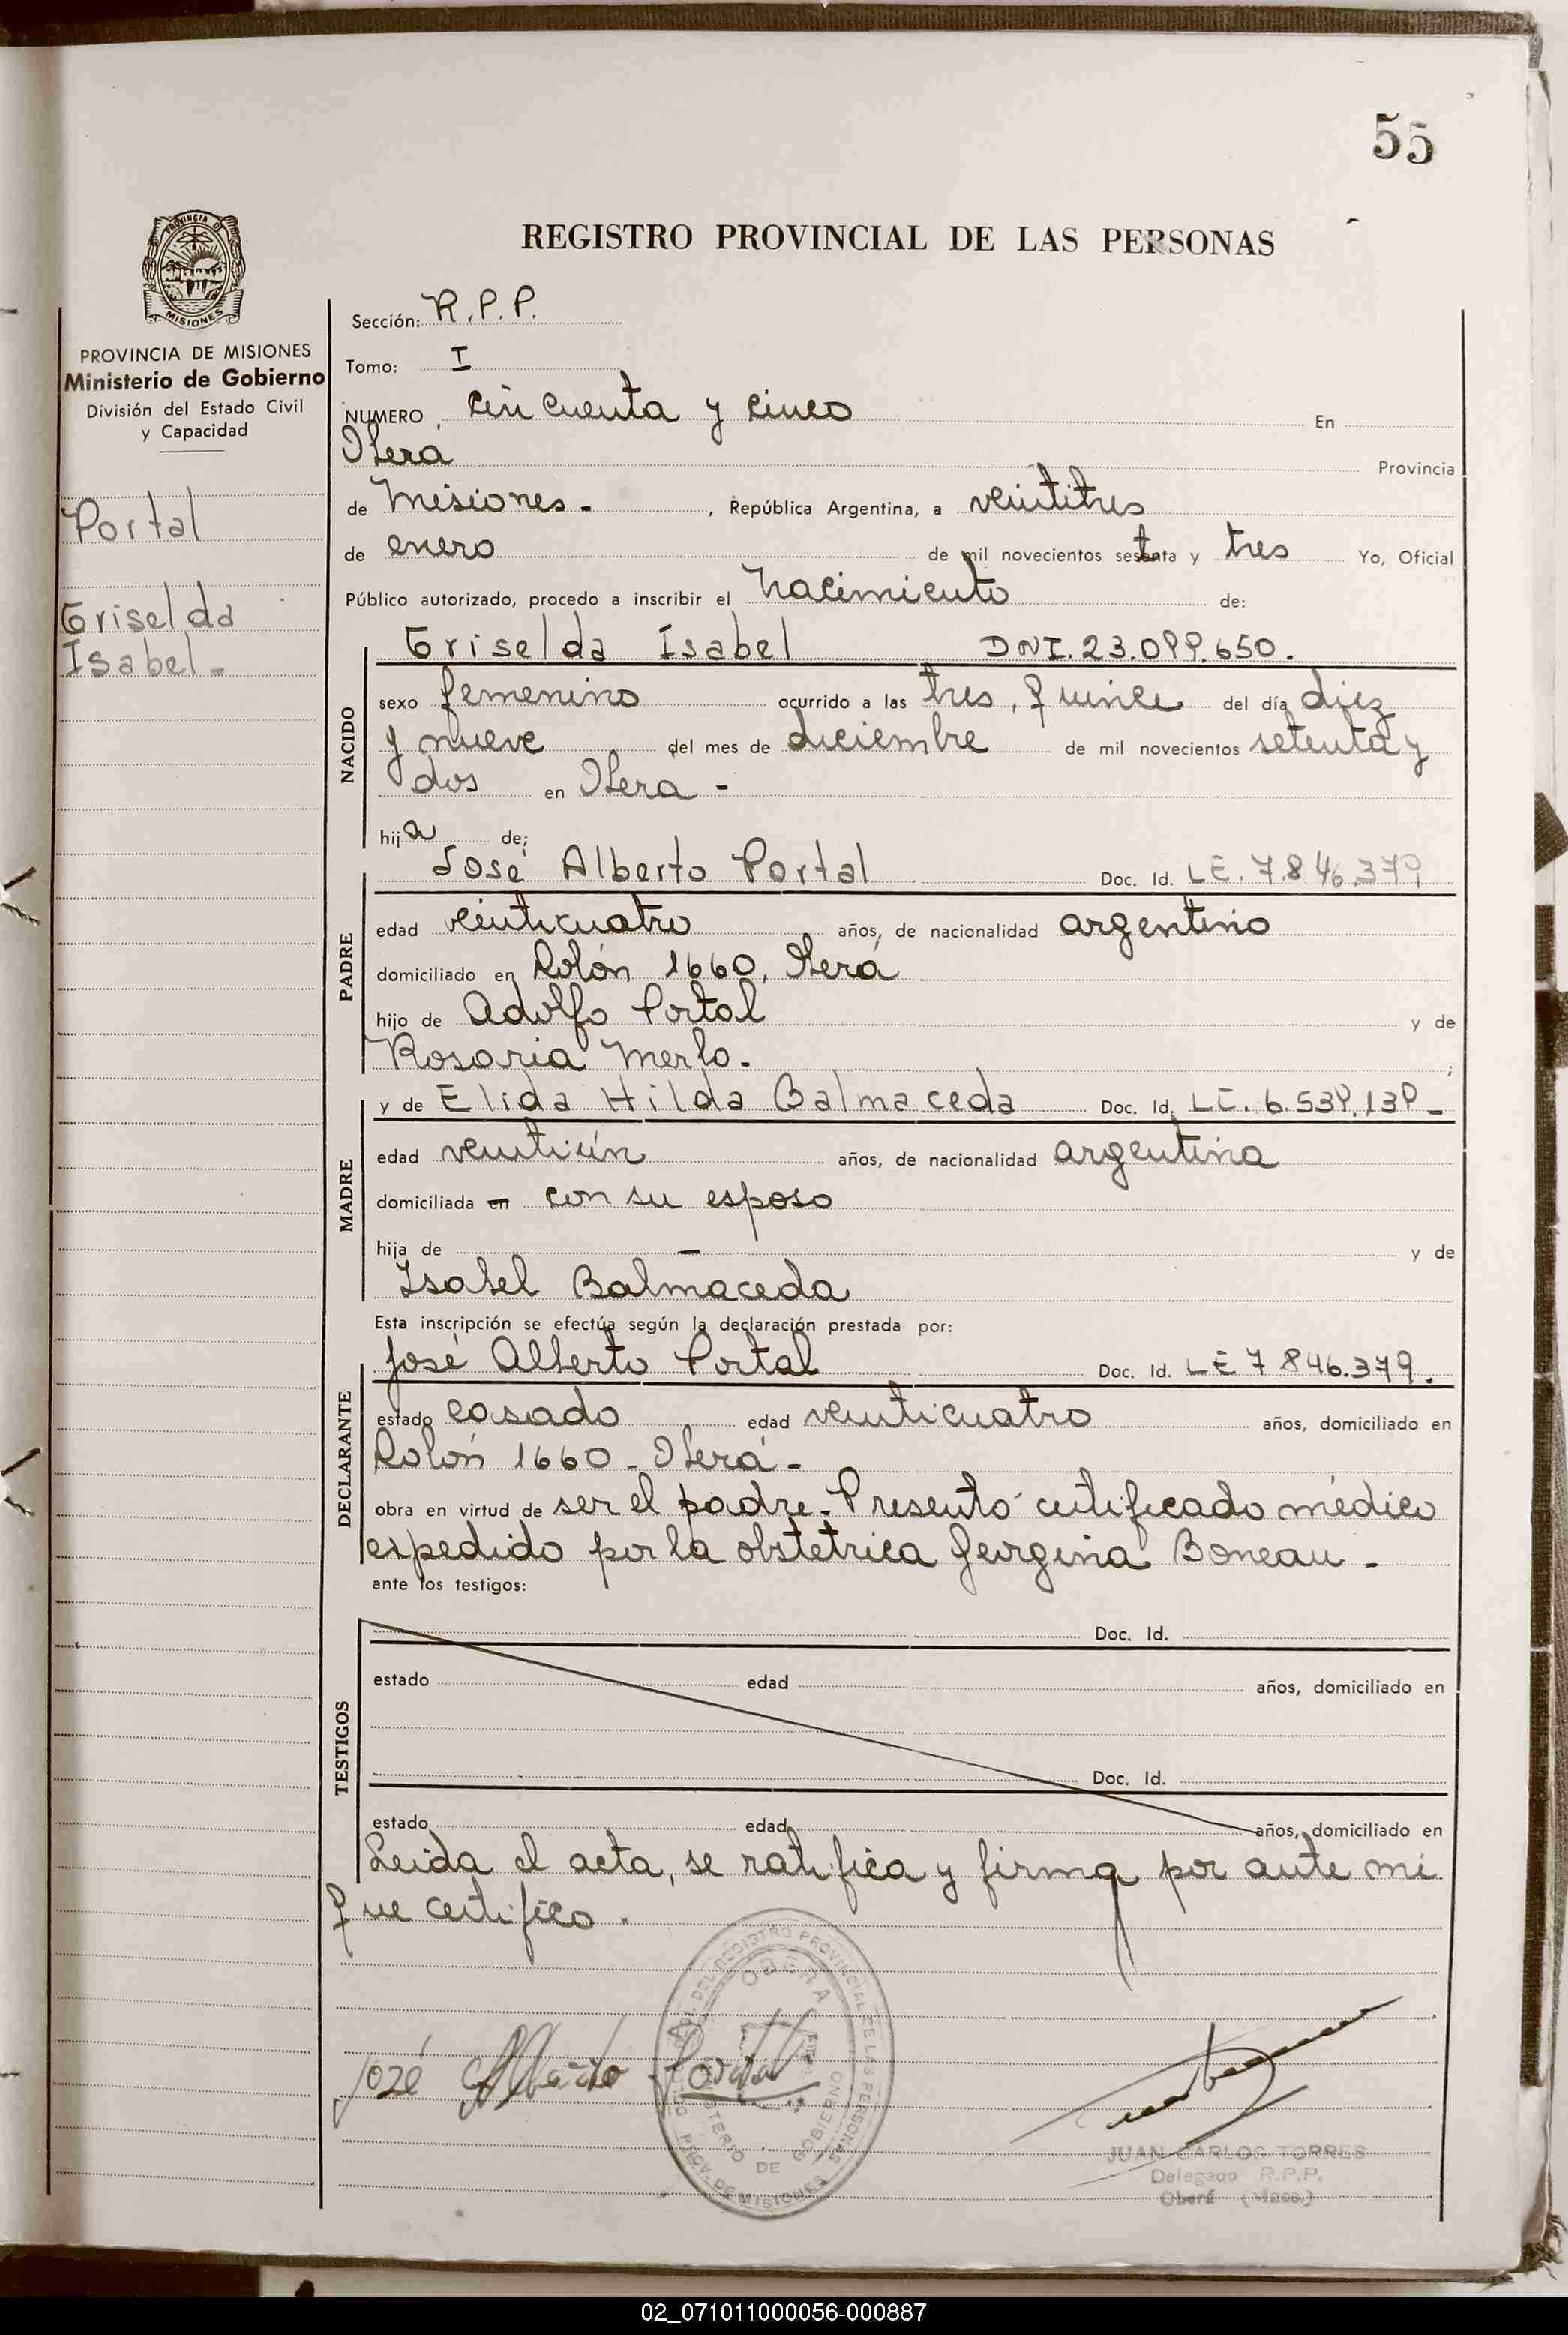 55
REGISTRO PROVINCIAL DE LAS PERSONAS
PROVINCIA DE MISIONES
Ministerio de Gobierno
División del Estado Civil
y Capacidad
Portal
Griselda
Isabel -
Sección: R.P.P.
Tomo: I
NUMERO cincuenta y cinco En
Oberá Provincia
de Misiones - , República Argentina, a veintitres
de enero de mil novecientos setenta y tres Yo, Oficial
Público autorizado, procedo a inscribir el Nacimiento de:
NACIDO
Griselda Isabel DNI. 23.099.650.
sexo femenino ocurrido a las tres, quince del día diez
y nueve del mes de diciembre de mil novecientos setenta y
dos en Oberá -
hija de:
PADRE
José Alberto Portal Doc. Id. LE. 7.846.379
edad veinticuatro años, de nacionalidad argentino
domiciliado en Colón 1660, Oberá
hijo de Adolfo Portal y de
Rosaria Merlo. ;
MADRE
y de Elida Hilda Balmaceda Doc. Id. LC. 6.539.139 -
edad veintiún años, de nacionalidad argentina
domiciliada en con su esposo
hija de — y de
Isabel Balmaceda
Esta inscripción se efectúa según la declaración prestada por:
DECLARANTE
José Alberto Portal Doc. Id. LE 7 846.379.
estado casado edad veinticuatro años, domiciliado en
Colón 1660 - Oberá -
obra en virtud de ser el padre. Presentó certificado médico
expedido por la obstetrica Georgina Boneau -
ante los testigos:
TESTIGOS
Doc. Id.
estado edad años, domiciliado en
Doc. Id.
estado edad años, domiciliado en
Leida el acta, se ratifica y firma por ante mi
que certifico.
OBERA
DEL REGISTRO PROVINCIAL DE LAS PERSONAS
MINISTERIO DE GOBIERNO
PROV. DE MISIONES
José Alberto Portal
JUAN CARLOS TORRES
Delegado R.P.P.
Oberá (Mnes.)
02_071011000056-000887